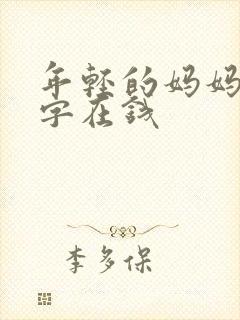 年轻的妈妈
字在钱
李多保